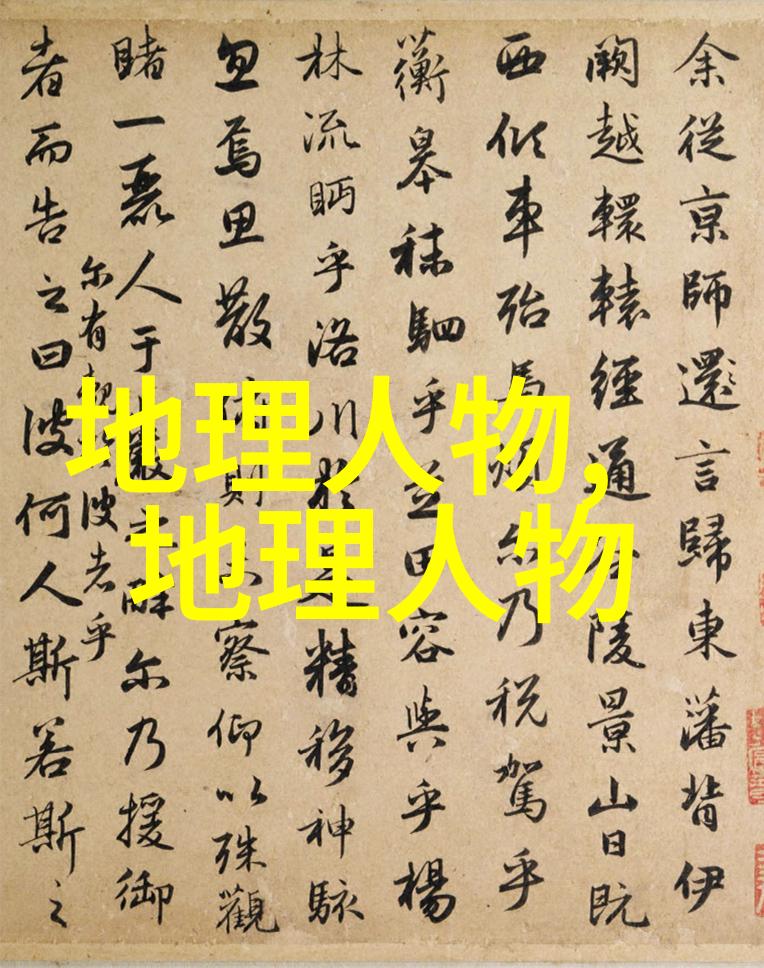 余從京師還言歸東藩背伊
闕越轘轅經通谷陵景山日既
西傾車殆馬煩尒乃税駕乎
蘅皋秣駟乎芝田容與乎楊
林流眄乎洛川於是精移神駭
忽焉思散俯則未察仰以殊觀
睹一麗人于巖之畔尒乃援御
者而告之曰彼何人斯若斯之
尒有覿於彼者乎
地理人物,
地理人物